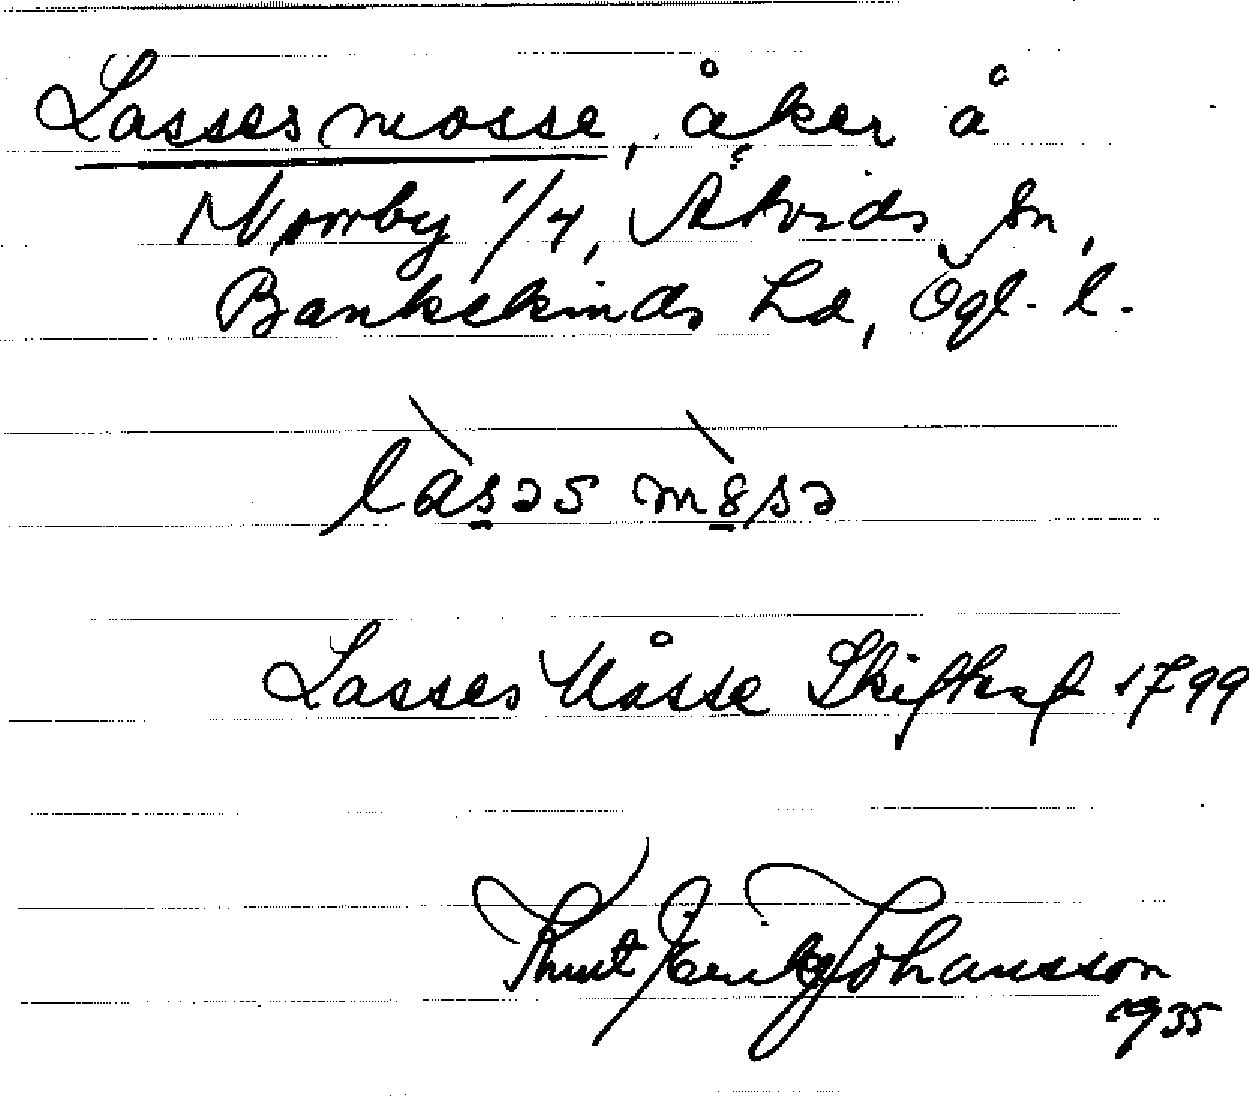 Lasses mosse, åker å
Norrby 1/4, Åtvids sn,
Bankekinds hd, Ögl. l.
làsəs m8sə
Lasses Måsse Skifteskart 1799
Knut Erik Johansson
1935